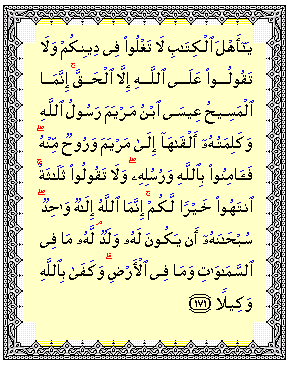 يَـٰٓأَهْلَ ٱلْكِتَـٰبِ لَا تَغْلُوا۟ فِى دِينِكُمْ وَلَا
تَقُولُوا۟ عَلَى ٱللَّهِ إِلَّا ٱلْحَقَّ ۚ إِنَّمَا
ٱلْمَسِيحُ عِيسَى ٱبْنُ مَرْيَمَ رَسُولُ ٱللَّهِ
وَكَلِمَتُهُۥٓ أَلْقَىٰهَآ إِلَىٰ مَرْيَمَ وَرُوحٌ مِّنْهُ ۖ
فَـَٔامِنُوا۟ بِٱللَّهِ وَرُسُلِهِۦ ۖ وَلَا تَقُولُوا۟ ثَلَـٰثَةٌ ۚ
ٱنتَهُوا۟ خَيْرًا لَّكُمْ ۚ إِنَّمَا ٱللَّهُ إِلَـٰهٌ وَٰحِدٌ ۖ
سُبْحَـٰنَهُۥٓ أَن يَكُونَ لَهُۥ وَلَدٌ ۘ لَّهُۥ مَا فِى
ٱلسَّمَـٰوَٰتِ وَمَا فِى ٱلْأَرْضِ ۗ وَكَفَىٰ بِٱللَّهِ
وَكِيلًا ١٧١